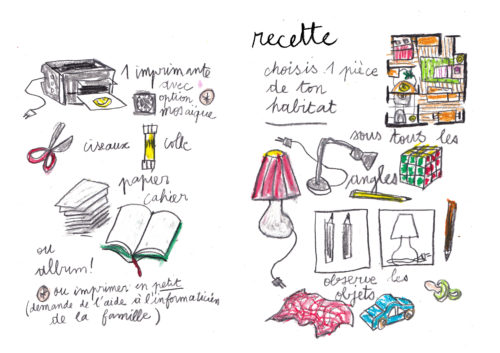 1 imprimante
avec
option
mosaïque
ciseaux
colle
papier
cahier
ou
album!
ou imprimer en petit
(demande de l'aide à l'informaticien
de la famille)
recette
choisis 1 pièce
de ton
habitat
sous tout les
angles
observe les
objets